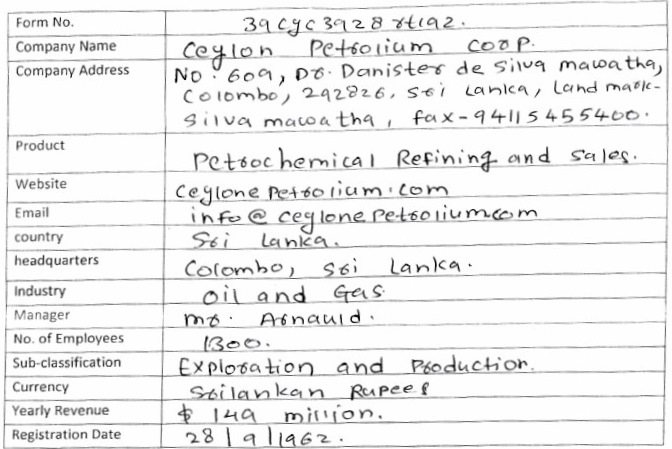 Form No. 39cyc3928rt192.
Company Name Ceylon Petrolium coop.
Company Address NO: 609, Dr. Danister de Silva mawatha,
Colombo, 292826, Sri Lanka, Land mark-
Silva mawatha, fax-94115455400.
Product Petrochemical Refining and sales.
Website Ceylonepetrolium.com
Email info@ceylonepetrolium.com
country Sri Lanka.
headquarters Colombo, Sri Lanka.
Industry Oil and Gas.
Manager mr. Arnauld.
No. of Employees 1300.
Sub-classification Exploration and Production.
Currency Srilankan Rupees
Yearly Revenue $ 149 million.
Registration Date 28|9|1962.